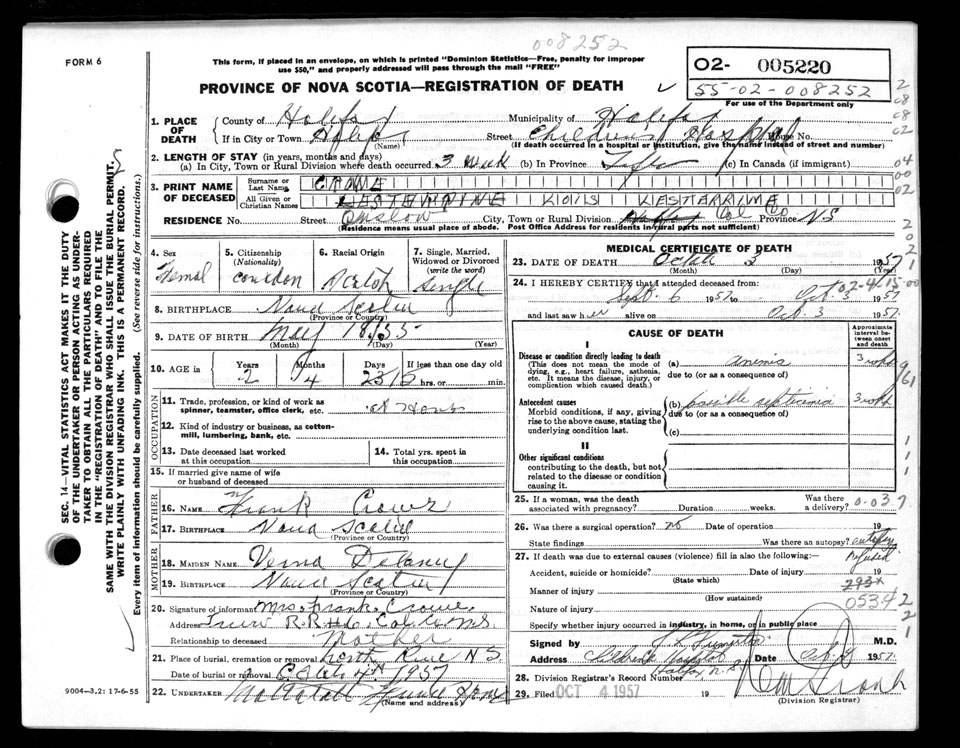 008252
FORM 6
This form, if placed in an envelope, on which is printed "Dominion Statistics—Free, penalty for improper
use $50," and properly addressed will pass through the mail "FREE"
O2- 005220
55-02-008252
For use of the Department only
PROVINCE OF NOVA SCOTIA—REGISTRATION OF DEATH
1. PLACE OF DEATH
County of Halifax Municipality of Halifax
If in City or Town Street Children's Hospital House No.
(Name) (If death occurred in a hospital or institution, give the name instead of street and number)
2. LENGTH OF STAY (in years, months and days)
(a) In City, Town or Rural Division where death occurred 3 week (b) In Province Life (c) In Canada (if immigrant)
3. PRINT NAME OF DECEASED
Surname or Last Name CROWE
All Given or Christian Names
RESIDENCE No. Street Onslow City, Town or Rural Division Col Co Province NS
(Residence means usual place of abode. Post Office Address for residents in rural parts not sufficient)
4. Sex
5. Citizenship (Nationality)
6. Racial Origin
7. Single, Married, Widowed or Divorced (write the word)
Single
8. BIRTHPLACE Nova Scotia
(Province or Country)
9. DATE OF BIRTH May 8/55
(Month) (Day) (Year)
10. AGE in Years Months Days If less than one day old
2 4 hrs. or min.
OCCUPATION
11. Trade, profession, or kind of work as spinner, teamster, office clerk, etc. at Home
12. Kind of industry or business, as cotton-mill, lumbering, bank, etc.
13. Date deceased last worked at this occupation
14. Total yrs. spent in this occupation
15. If married give name of wife or husband of deceased
FATHER
16. NAME Frank Crowe
17. BIRTHPLACE Nova Scotia
(Province or Country)
MOTHER
18. MAIDEN NAME Verna Delaney
19. BIRTHPLACE Nova Scotia
(Province or Country)
20. Signature of informant Mrs. Frank Crowe
Address Truro R.R #6 Col Co N.S.
Relationship to deceased Mother
21. Place of burial, cremation or removal North River NS
Date of burial or removal 4 1957
22. UNDERTAKER Mattatall Home
(Name and address)
9004—3.2: 17-6-55
MEDICAL CERTIFICATE OF DEATH
23. DATE OF DEATH 3 1957
(Month) (Day) (Year)
24. I HEREBY CERTIFY that I attended deceased from:
Sept. 6 1957 to Oct. 3 1957
and last saw her alive on Oct. 3 1957
02-4-15-00
CAUSE OF DEATH
Approximate interval between onset and death
I
Disease or condition directly leading to death
(This does not mean the mode of dying, e.g., heart failure, asthenia, etc. It means the disease, injury, or complication which caused death.)
(a) anemia
due to (or as a consequence of)
Antecedent causes
Morbid conditions, if any, giving rise to the above cause, stating the underlying condition last.
(b) possible septicemia
due to (or as a consequence of)
(c)
II
Other significant conditions
contributing to the death, but not related to the disease or condition causing it.
25. If a woman, was the death associated with pregnancy? Duration weeks. Was there a delivery?
26. Was there a surgical operation? no Date of operation 19
State findings Was there an autopsy? autopsy refused
27. If death was due to external causes (violence) fill in also the following:—
Accident, suicide or homicide? Date of injury 19
(State which)
Manner of injury
(How sustained)
Nature of injury
0534
Specify whether injury occurred in industry, in home, or in public place
Signed by M.D.
Address Children's Hospital Date 1957
Halifax N.S.
28. Division Registrar's Record Number
29. Filed OCT 4 1957 19
(Division Registrar)
SEC. 14—VITAL STATISTICS ACT MAKES IT THE DUTY
OF THE UNDERTAKER OR PERSON ACTING AS UNDER-
TAKER TO OBTAIN ALL THE PARTICULARS REQUIRED
IN THE "REGISTRATION OF DEATH" AND TO FILE THE
SAME WITH THE DIVISION REGISTRAR WHO SHALL ISSUE THE BURIAL PERMIT.
WRITE PLAINLY WITH UNFADING INK. THIS IS A PERMANENT RECORD.
Every item of information should be carefully supplied. (See reverse side for instructions.)